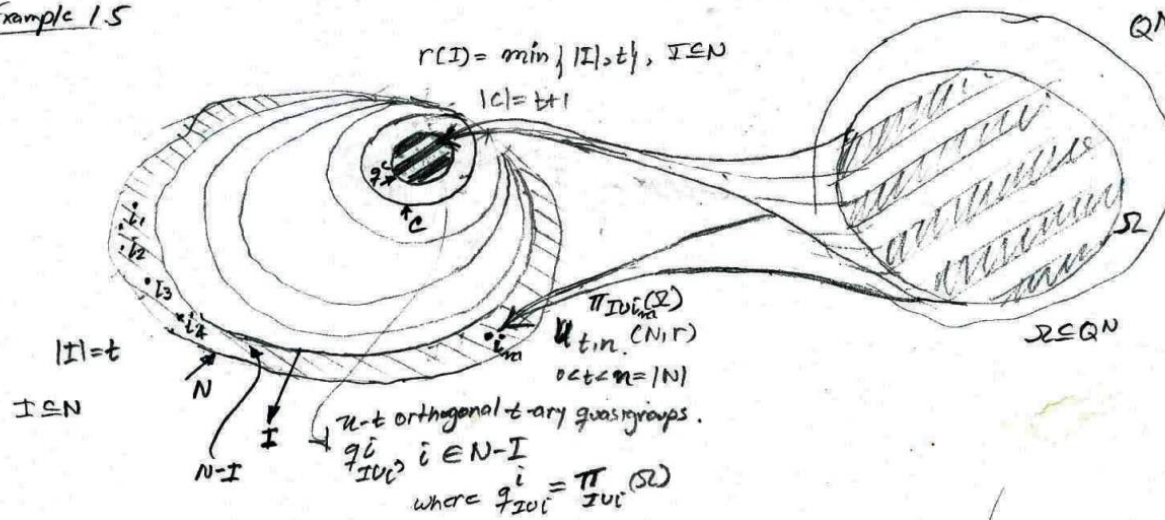 Example 1.5
QN
r(I) = min{|I|, t}, I⊆N
|C| = t+1
q^c
C
i1
i2
i3
i4
Ω
Ω⊆QN
|I| = t
I⊆N
N
N-I
I
i_m
U t,n. (N,r)
0<t<n=|N|
n-t orthogonal t-ary quasigroups.
q^i_{I∪i}, i ∈ N-I
where q^i_{I∪i} = π_{I∪i}(Ω)